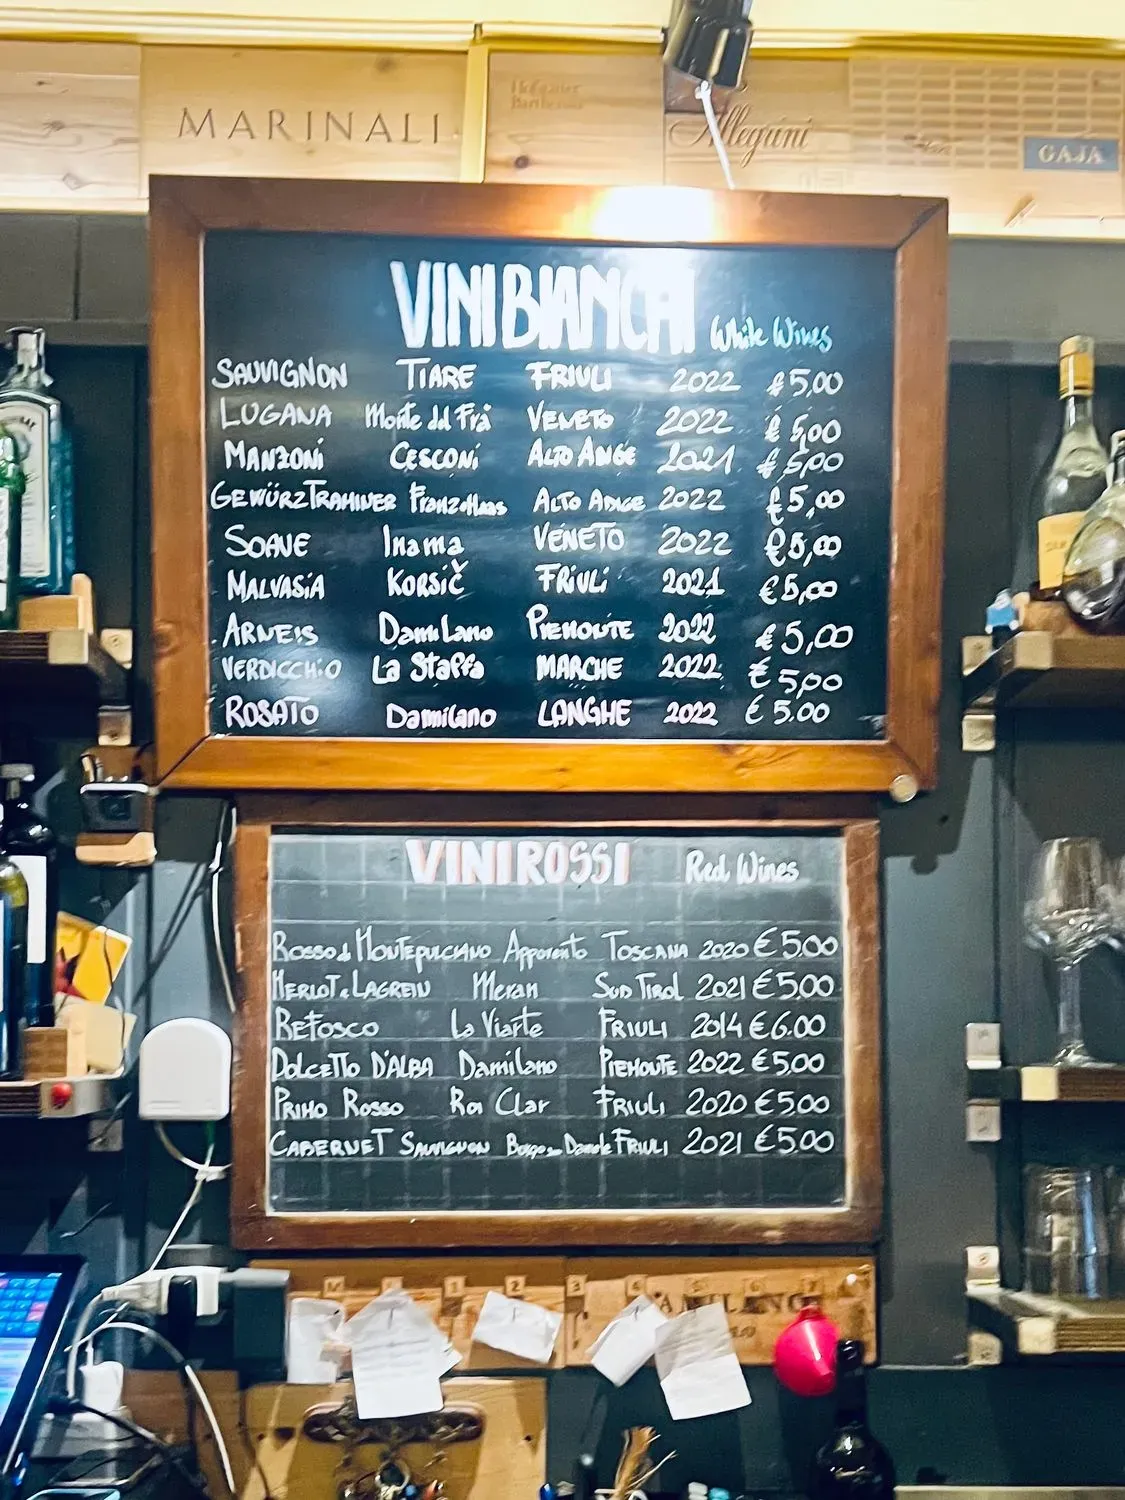 MARINALI
Allegrini
GAJA
VINI BIANCHI White Wines
SAUVIGNON TIARE FRIULI 2022 €5,00
LUGANA Monte del Frà VENETO 2022 €5,00
MANZONI CESCONI ALTO ADIGE 2021 €5,00
GEWÜRZTRAMINER Franz Haas ALTO ADIGE 2022 €5,00
SOAVE Inama VENETO 2022 €5,00
MALVASIA KORSIČ FRIULI 2021 €5,00
ARNEIS DamiLano PIEMONTE 2022 €5,00
VERDICCHIO La Staffa MARCHE 2022 €5,00
ROSATO Damilano LANGHE 2022 €5.00
VINI ROSSI Red Wines
ROSSO di MONTEPULCIANO TOSCANA 2020 €5.00
MERLOT e LAGREIN Meran SUD TIROL 2021 €5.00
REFOSCO La Viarte FRIULI 2014 €6.00
DOLCETTO D'ALBA Damilano PIEMONTE 2022 €5.00
PRIMO ROSSO Roi Clar FRIULI 2020 €5.00
CABERNET SAUVIGNON FRIULI 2021 €5.00